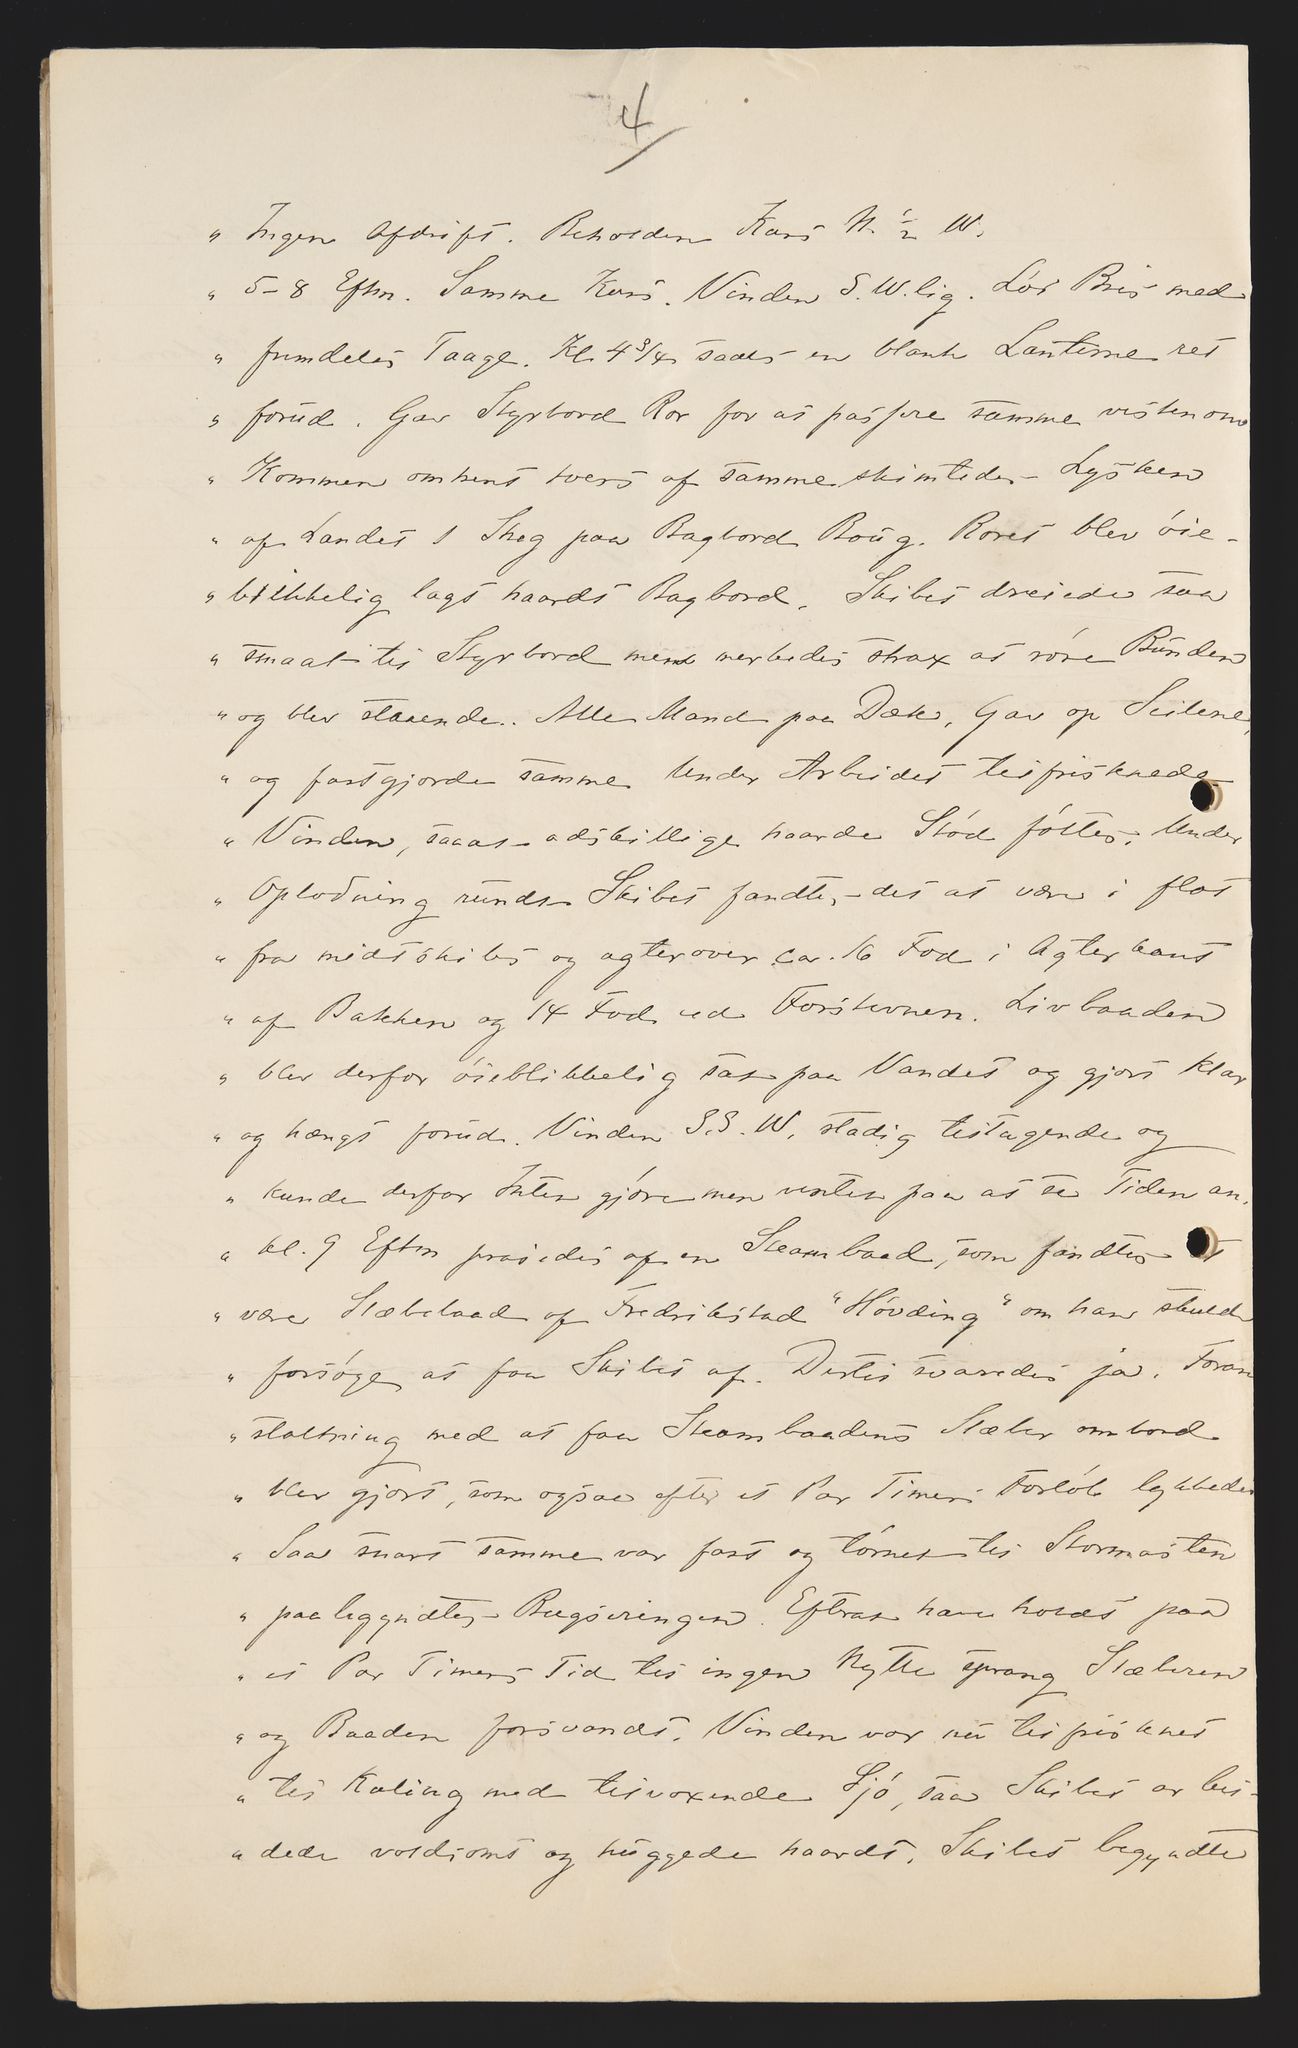 4
" Ingen Afdrift. Beholden Kurs N. ½ W.
" 5-8 Eftm. Samme Kurs. Vinden S.W.lig. Lør Bris med
" fremdeles Taage. Kl. 4 3/4 saaes en blank Lanterne ret
" forud. Gav Styrbord Ror for at passere samme vestenom
" Kommen omtrent tvers af samme skimtedes Lyskeen
" af Landet 1 Streg paa Bagbord Boug. Roret blev øie-
" blikkelig lagt haardt Bagbord. Skibet dreiede saa
" smaat til Styrbord men merkedes strax at røre Bunden
" og blev staaende. Alle Mand paa Dæk, Gav op Seilene,
" og fastgjorde samme Under Arbeidet tilfrisknede
" Vinden, saaat adskillige haarde Stød føltes. Under
" Oplodning rundt Skibet fandtes det at være i flot
" fra midtskibs og agterover ca. 16 Fod i Agterkant
" af Bakken og 14 Fod ved Forstevnen. Livbaaden
" blev derfor øieblikkelig sat paa Vandet og gjort klar
" og hængt forud. Vinden S.S.W. stadig tiltagende og
" kunde derfor Intet gjøre men vente paa at se Tiden an.
" kl. 9 Eftm praiedes af en Steambaad, som fandtes at
" være Slæbebaad af Fredrikstad "Høvding" om han skulde
" forsøge at faa Skibet af. Dertil svaredes ja. Foran
" staltning med at faa Steambaadens Slæber ombord
" blev gjort, som ogsaa efter et Par Timers Forløb lykkedes
" Saa snart samme var fast og tørnet til Stormasten
" paabegyndtes Bugseringen. Efterat have holdt paa
" et Par Timers Tid til ingen Nytte sprang Slæberen
" og Baaden forsvandt. Vinden var nu tilfrisknet
" til Kuling med tilvoxende Sjø, saa Skibet ar bei-
" dede voldsomt og huggede haardt. Skibet begyndte